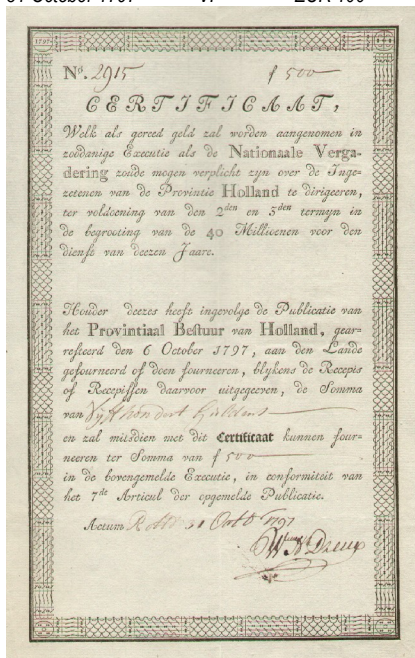 31 October 1797 VF EUR 100
1797
Nº. 2915 ƒ 500
CERTIFICAAT,
Welk als gereed geld zal worden aangenomen in
zoddanige Executie als de Nationaale Verga-
dering zoude mogen verplicht zyn over de Inge-
zetenen van de Provintie Holland te dirigeeren,
ter voldoening van den 2den en 3den termyn in
de begrooting van de 40 Millioenen voor den
dienst van deezen Jaare.
Houder deezes heeft ingevolge de Publicatie van
het Provintiaal Bestuur van Holland, gear-
resteerd den 6 October 1797, aan den Lande
gefourneerd of doen fourneeren, blykens de Recepis
of Recepissen daarvoor uitgegeven, de Somma
van Vyf hondert Guldens
en zal mitsdien met dit Certificaat kunnen four-
neeren ter Somma van ƒ 500
in de bovengemelde Executie, in conformiteit van
het 7de Articul der opgemelde Publicatie.
Actum Rott 31 Octb 1797